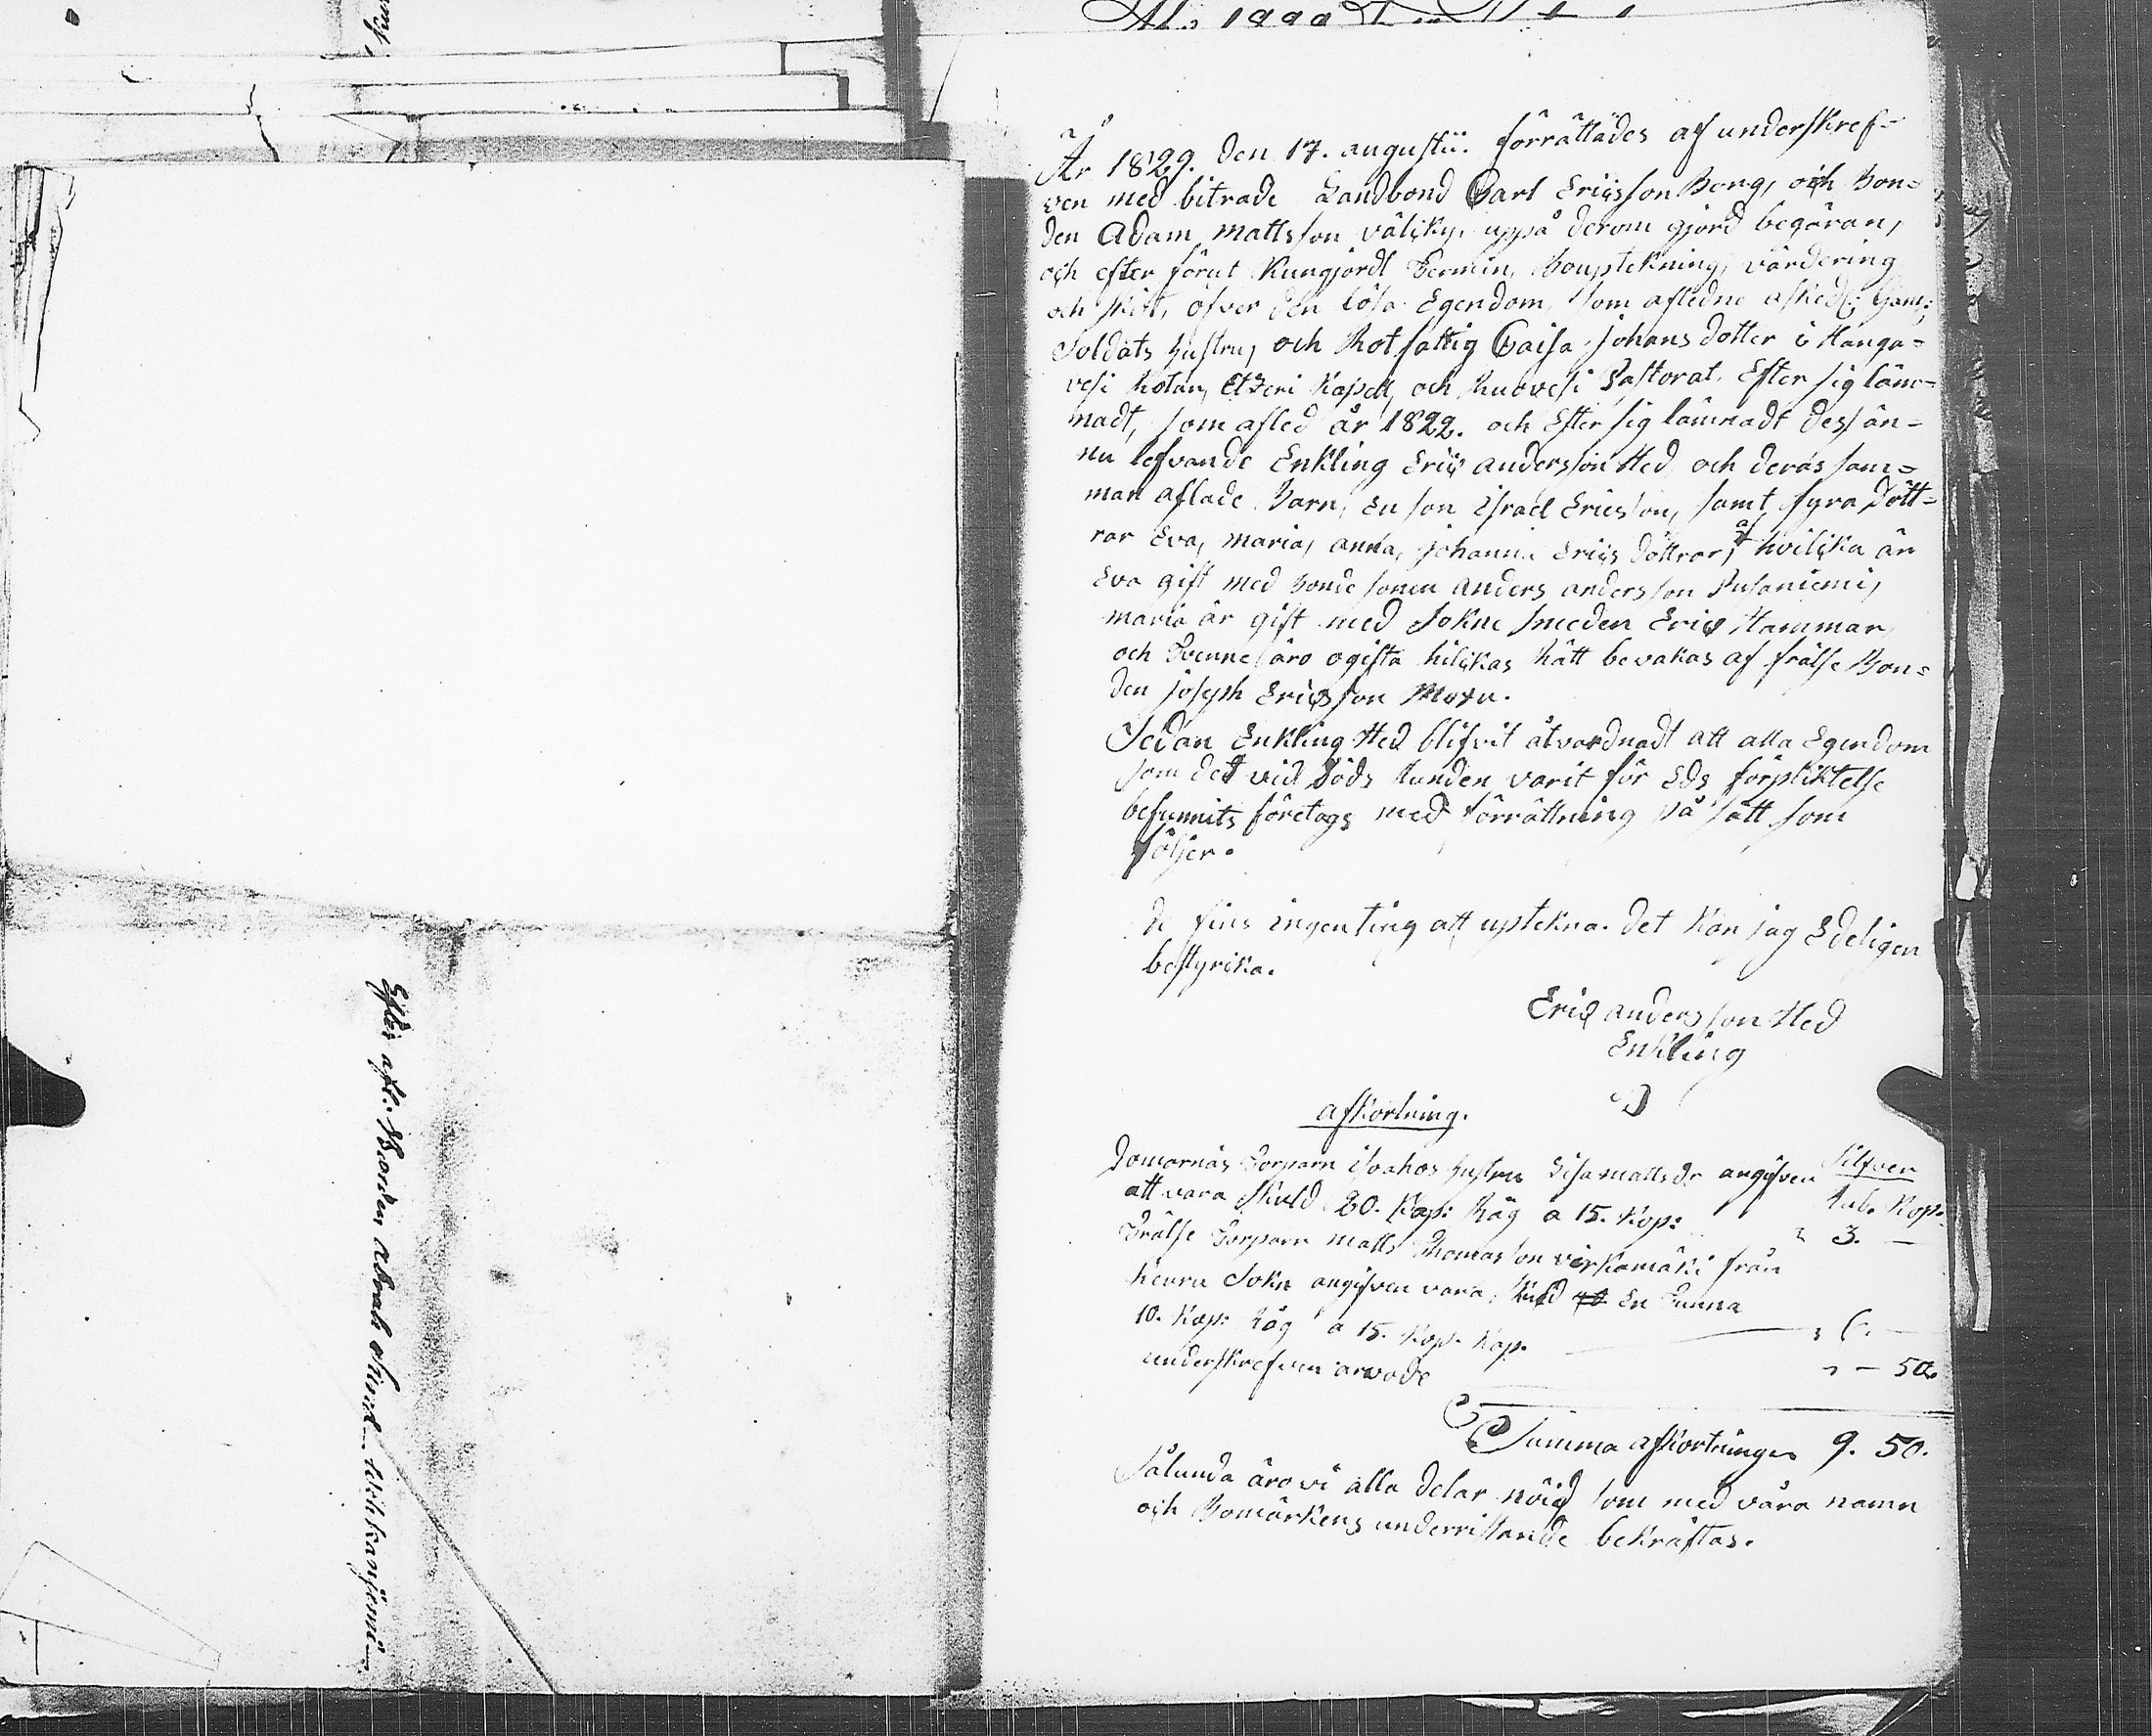 Efter afl: Bonden Abrah
År 1829. den 17. augustii. förrättades af underskref=
ven med biträde Landbond Carl Ericsson Bong, och Bon=
den Adam mattsson välsky. uppå derom gjord begäran,
och efter förut Kungjordt Termin, Bouptekning, värdering
och skift, öfver den lösa Egendom, som afledne afsked: Gam:
Soldats hustru, och Rotfattig Caisa Johansdotter i Hanga=
vesi Rotan, Etzeri Kapell, och Ruovesi Pastorat. Efter sig läm=
nadt, som afled år 1822. och Efter sig lämnadt dess än=
nu lefvande Enkling Eric andersson Hed och deras sam=
man aflade Barn, En son Israel Ericsson, samt fyra Dött=
rar Eva, maria, anna, johanna Erics döttrar, af hvilcka är
Eva gift med Bonde sonen anders andersson Pusaniemi,
maria är gift med Sokne smeden Eric Hammar
och Tvenne äro ogifta hilckas Rätt bevakas af frälse Bon=
den joseph Ericsson
Sedan Enkling Hed blifvit åtvardnadt att alla Egendom
som det vid Döds stunden varit för Eds förpliktelse
befunnits företogs med förrättning på sätt som
följer.
de fins ingenting att uptekna. det kan jag Edeligen
bestyrika.
Eric andersson Hed
Enkling
afkortning.
Domarnäs Torparn isoahos hustru Lisa mattsdr angifven Silfver
att vara skuld 20. Kap: Råg a 15. Kop: Rub. Kop.
3. —
Frälse Torparn matts Thomasson virkamäki från
Keuru Sokn angifven vara skuld En Tunna
10. Kap: Råg a 15. Kop. Kap. 6. —
underskrefven arvode — 50.
Summa afkortninge 9. 50.
Sålunda äro vi alla delar nöigd som med våra namn
och Bomärkens underristande bekräftas.